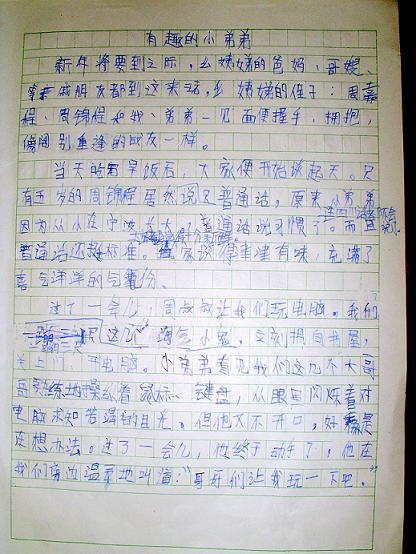 有趣的小弟弟
新年将要到之际，幺姨娣的爸妈、哥嫂、
戚朋友都到这来玩。幺姨娣的侄子：周嘉
程、周锦程和我、弟弟一见面便握手，拥抱，
像阔别重逢的战友一样。
当天的早饭后，大家便开始谈起天。只
有五岁的周锦程居然说只普通话，原来小弟弟
因为从小在宁波长大，普通话说习惯了。而且
普通话还越标准。大家谈得津津有味，充满了
喜气洋洋的气氛。
过了一会儿，周叔叔让我们玩电脑。我们
这几 淘气小鬼，立刻拥向书屋，
关上门 开电脑。小弟弟看见我们这几个大哥
哥熟练地操纵着鼠标、键盘，从眼里闪烁着对
电脑求知若渴的目光。但他又不开口，好像是
在想办法。过了一会儿，他终于动手了，他在
我们旁边温柔地叫道："哥哥们让我玩一下吧。"